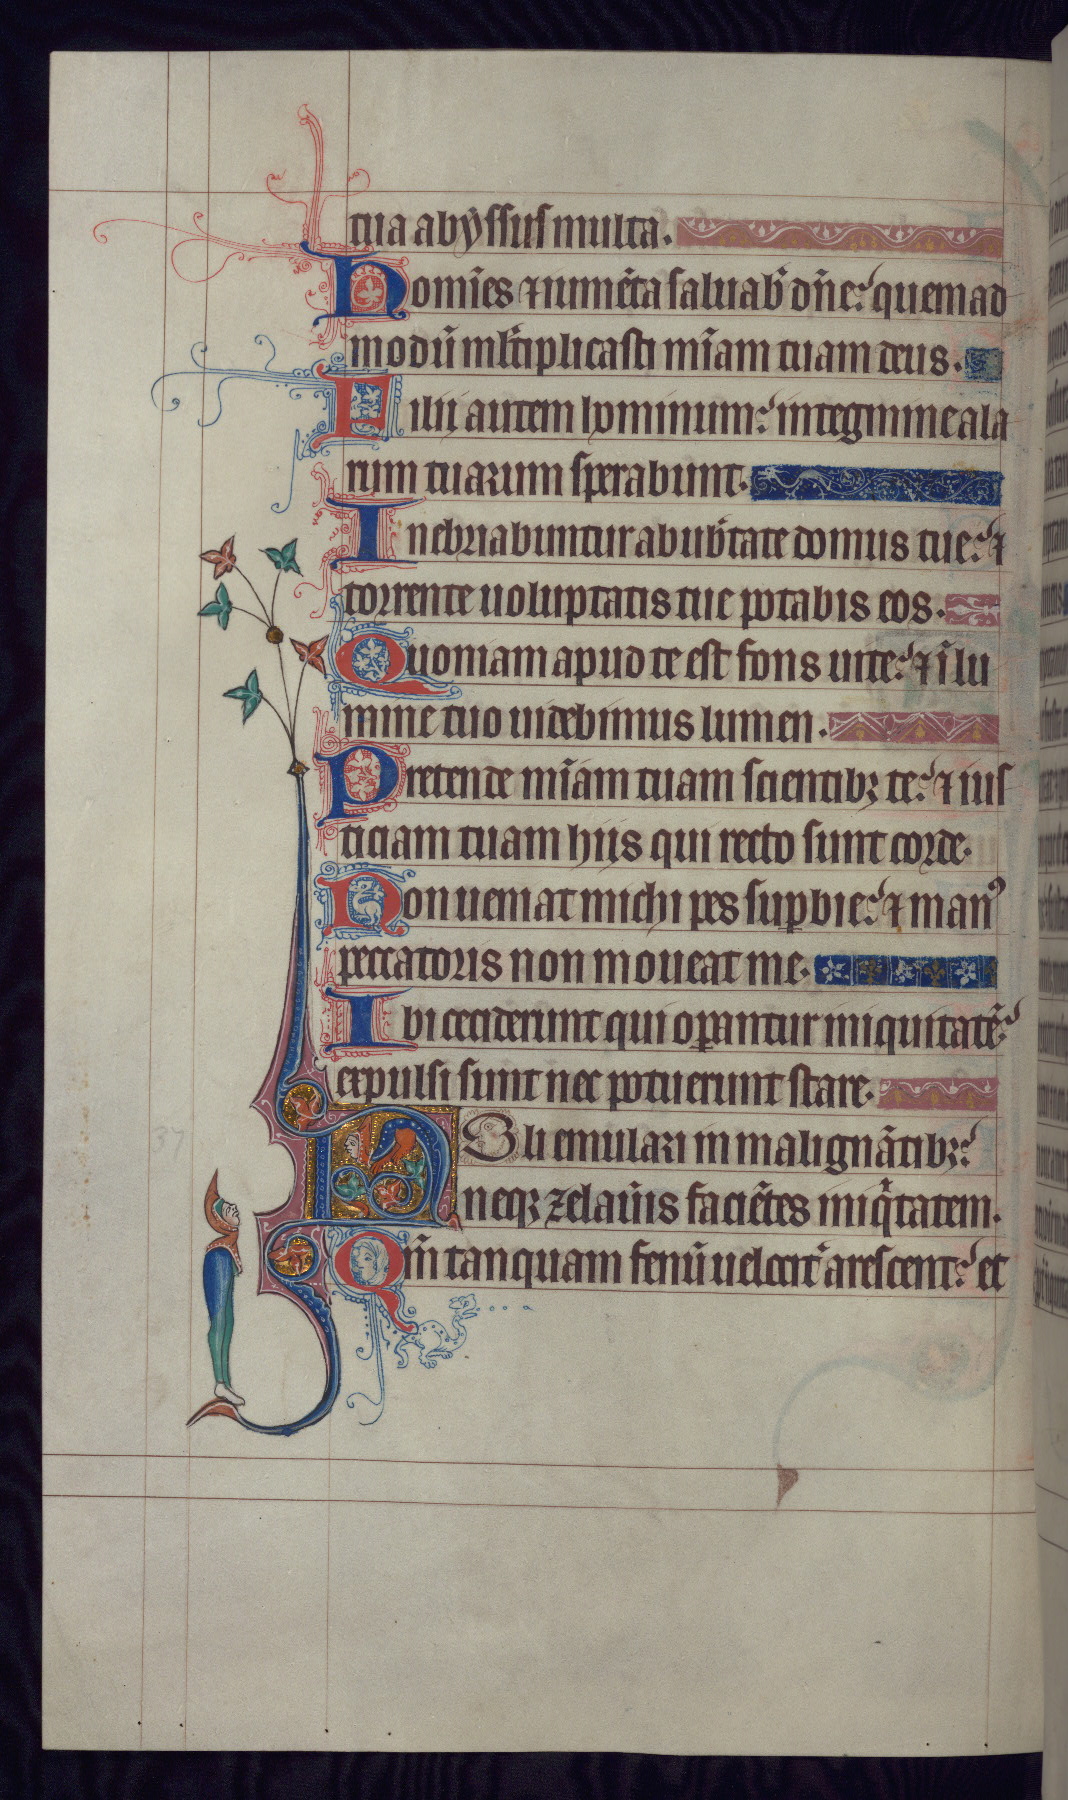 tua abyssus multa.
Homīes ⁊ iumēta saluab̄ dn̄e: quemad
modū ml̄tiplicasti mīam tuam deus.
Filij autem hominum: in tegmine ala
rum tuarum sperabunt.
Inebriabuntur ab ub̄tate domus tue: ⁊
torrente uoluptatis tue potabis eos.
Quoniam apud te est fons uite: ⁊ ī lu
mine tuo uidebimus lumen.
Pretende mīam tuam scientibꝫ te: ⁊ ius
ticiam tuam hiis qui recto sunt corde.
Non ueniat michi pes suꝑbie: ⁊ manꝰ
peccatoris non moueat me.
Ibi ceciderunt qui oꝑantur iniquitatē:
expulsi sunt nec potuerunt stare.
Noli emulari in malignātibꝫ:
neqꝫ zelau̾is faciētes iniqͥtatem.
Qm̄ tanquam fenū uelocit̾ arescent: et
37